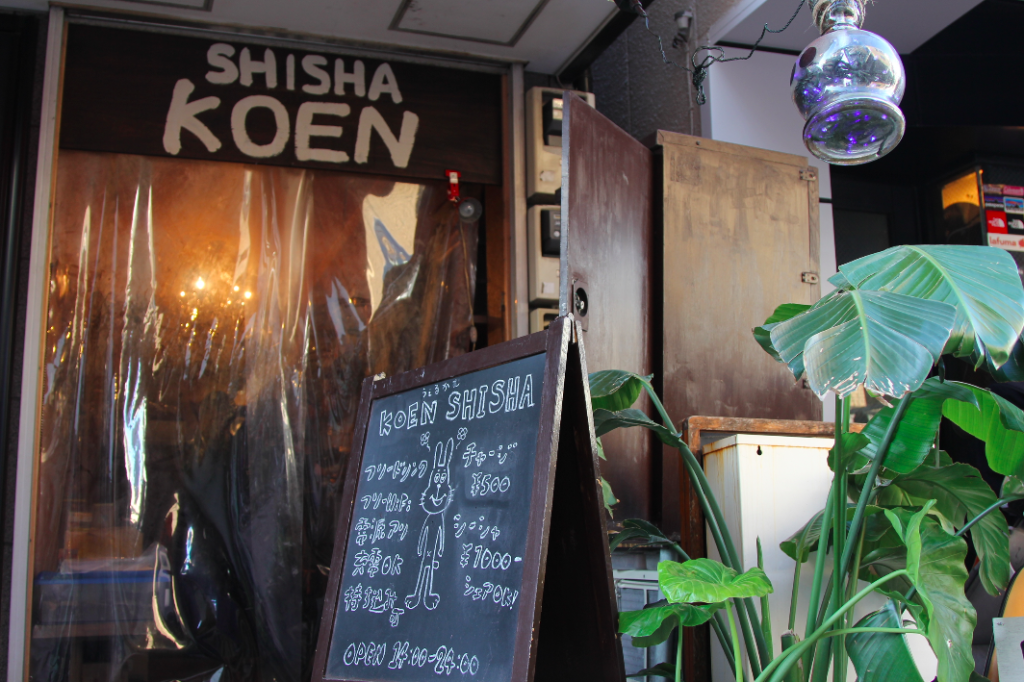 SHISHA
KOEN
KOEN SHISHA
チャージ
¥500
フリードリンク
フリーWiFi
電源アリ
充電OK
持込み可
シーシャ
¥1000-
シェアOK!
OPEN 14:00-24:00
lafuma